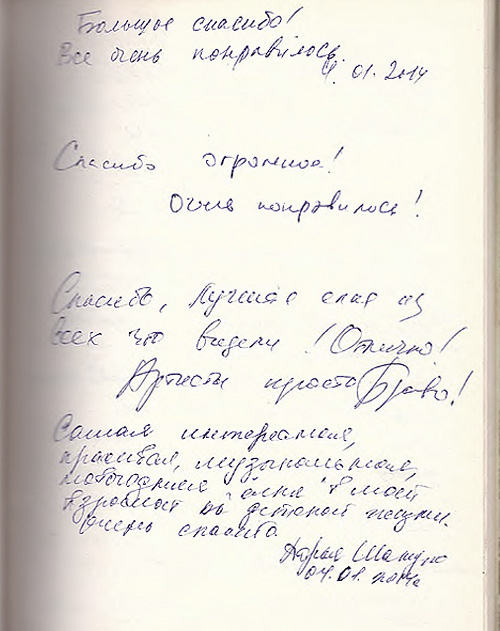 Большое спасибо!
Все очень понравилось.
4. 01. 2014
Спасибо огромное!
Очень понравилось!
Спасибо, Лучшая елка из
всех что видели! Отлично!
Артисты просто Браво!
Самая интересная,
красивая, музыкальная,
новогодняя "ёлка" в моей
взрослой и детской жизни.
Очень спасибо.
Дарья
04.01.2014